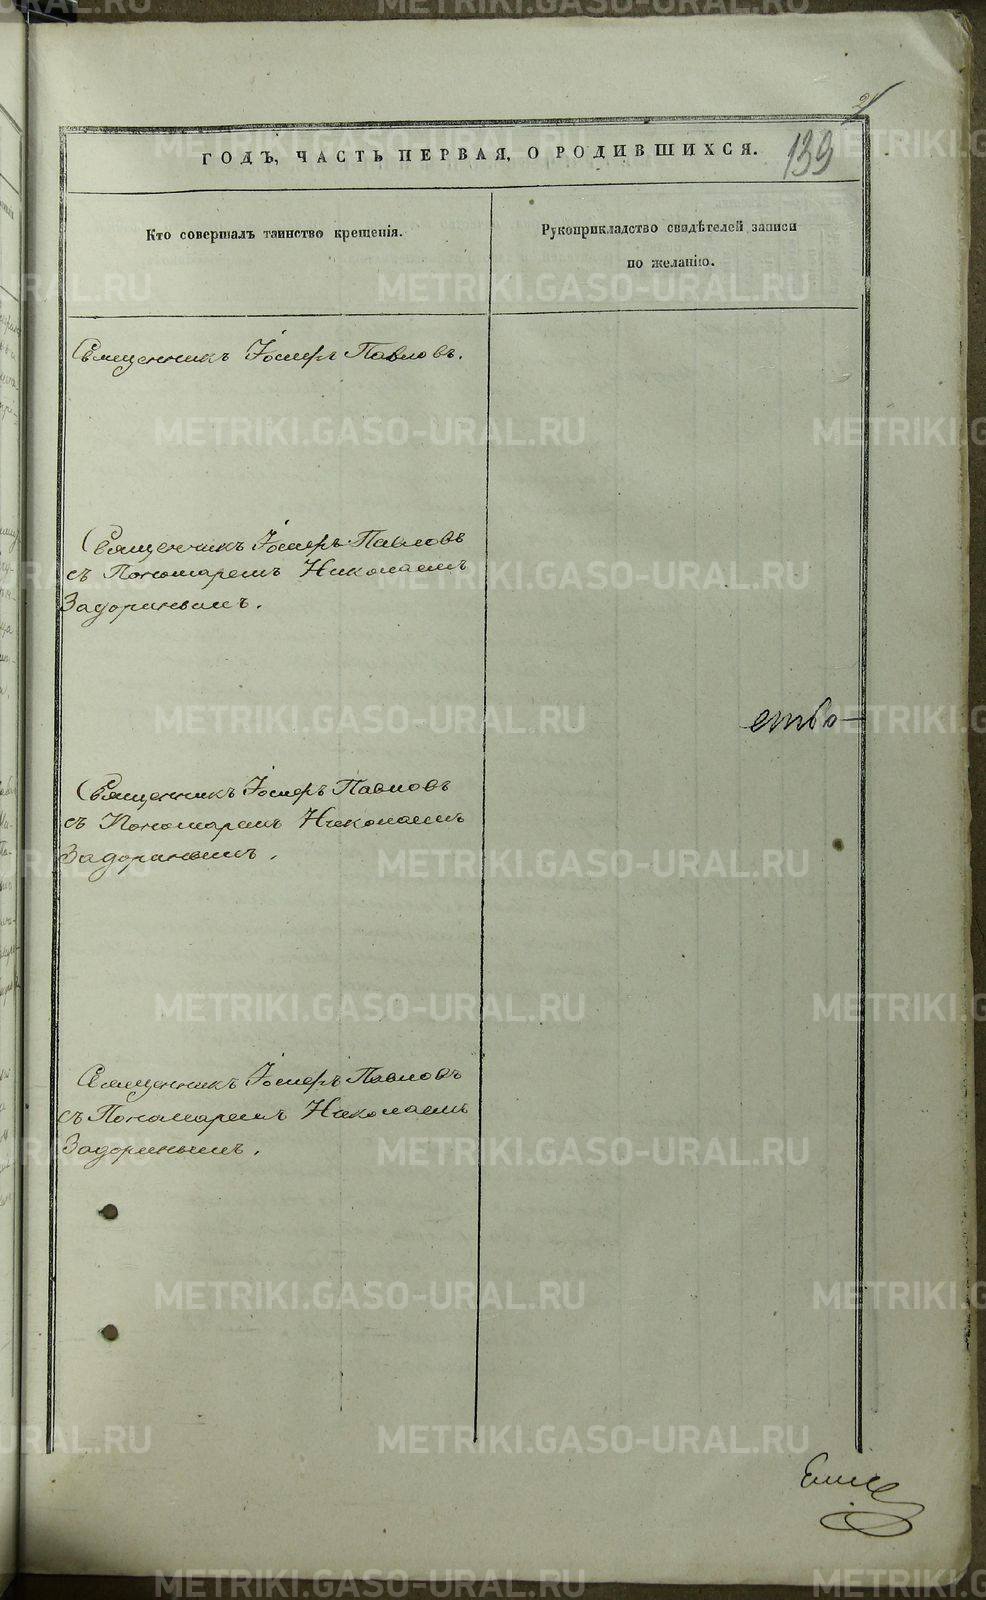 2
139
ГОДЪ, ЧАСТЬ ПЕРВАЯ, О РОДИВШИХСЯ.
Кто совершалъ таинство крещенія.
Рукоприкладство свидѣтелей записи
по желанію.
Священникъ Іосифъ Павловъ.
Священникъ Іосифъ Павловъ
съ Пономаремъ Николаемъ
Задоринымъ.
ство
Священникъ Іосифъ Павловъ
съ Пономаремъ Николаемъ
Задоринымъ.
Священникъ Іосифъ Павловъ
съ Пономаремъ Николаемъ
Задоринымъ.
METRIKI.GASO-URAL.RU